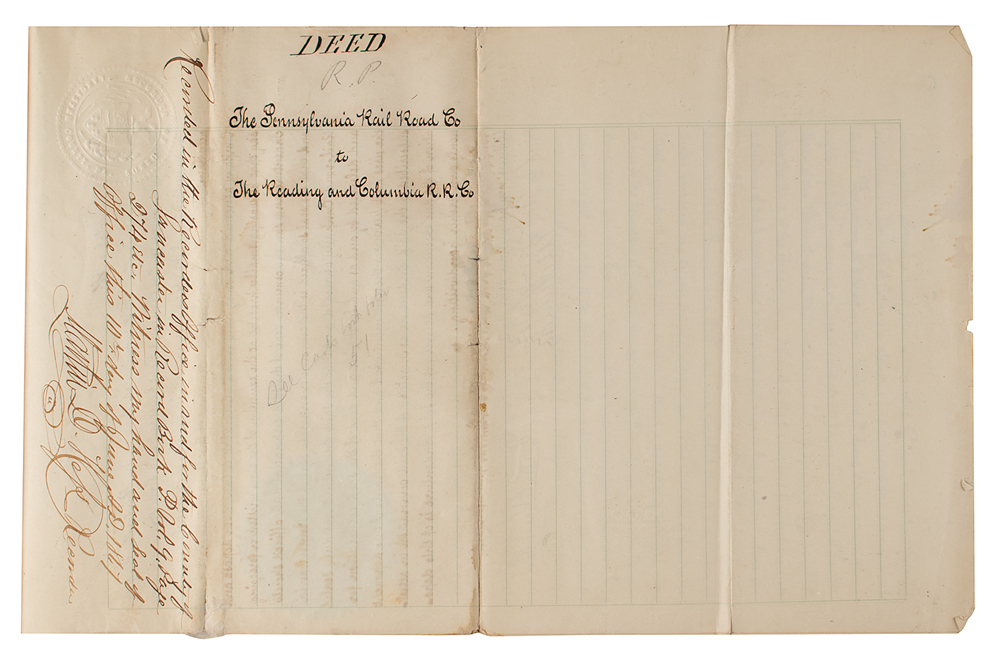 DEED
R. P.
The Pennsylvania Rail Road Co
to
The Reading and Columbia R. R. Co
See
51
Recorded in the Recorders Office in and for the County of
Lancaster in Record Book P. Vol. 9, Page
274 &c. Witness my hand and Seal of
Office this 10th day of June A.D. 1867
Recorder